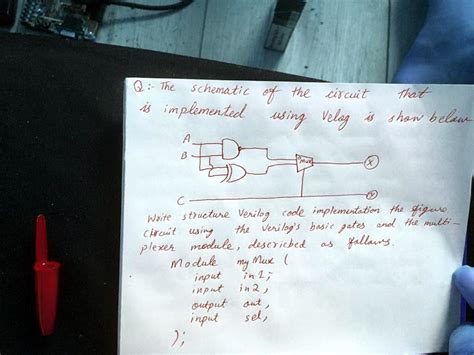 Q:- The schematic of the circuit that
is implemented using Velog is show below
A
B
mux
X
C
Y
Write structure Verilog code implementation the figure
Circuit using the Verilog's basic gates and the multi-
plexer module, described as fallows.
Module myMux (
input in1;
input in2,
output out,
input sel,
);